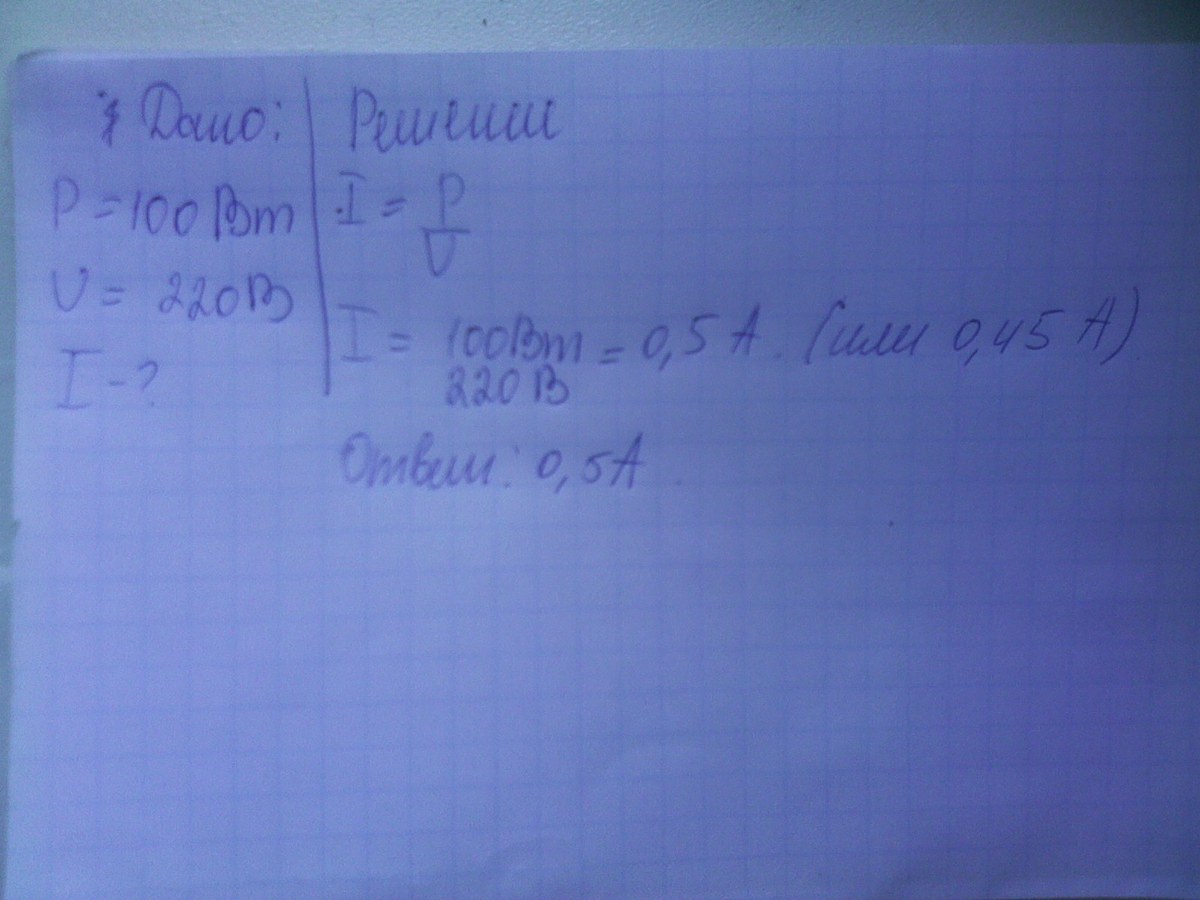 Дано:
P = 100 Вт
U = 220 В
I - ?
Решение
I = P
U
I = 100 Вт = 0,5 А. (или 0,45 А)
220 В
Ответ: 0,5 А.